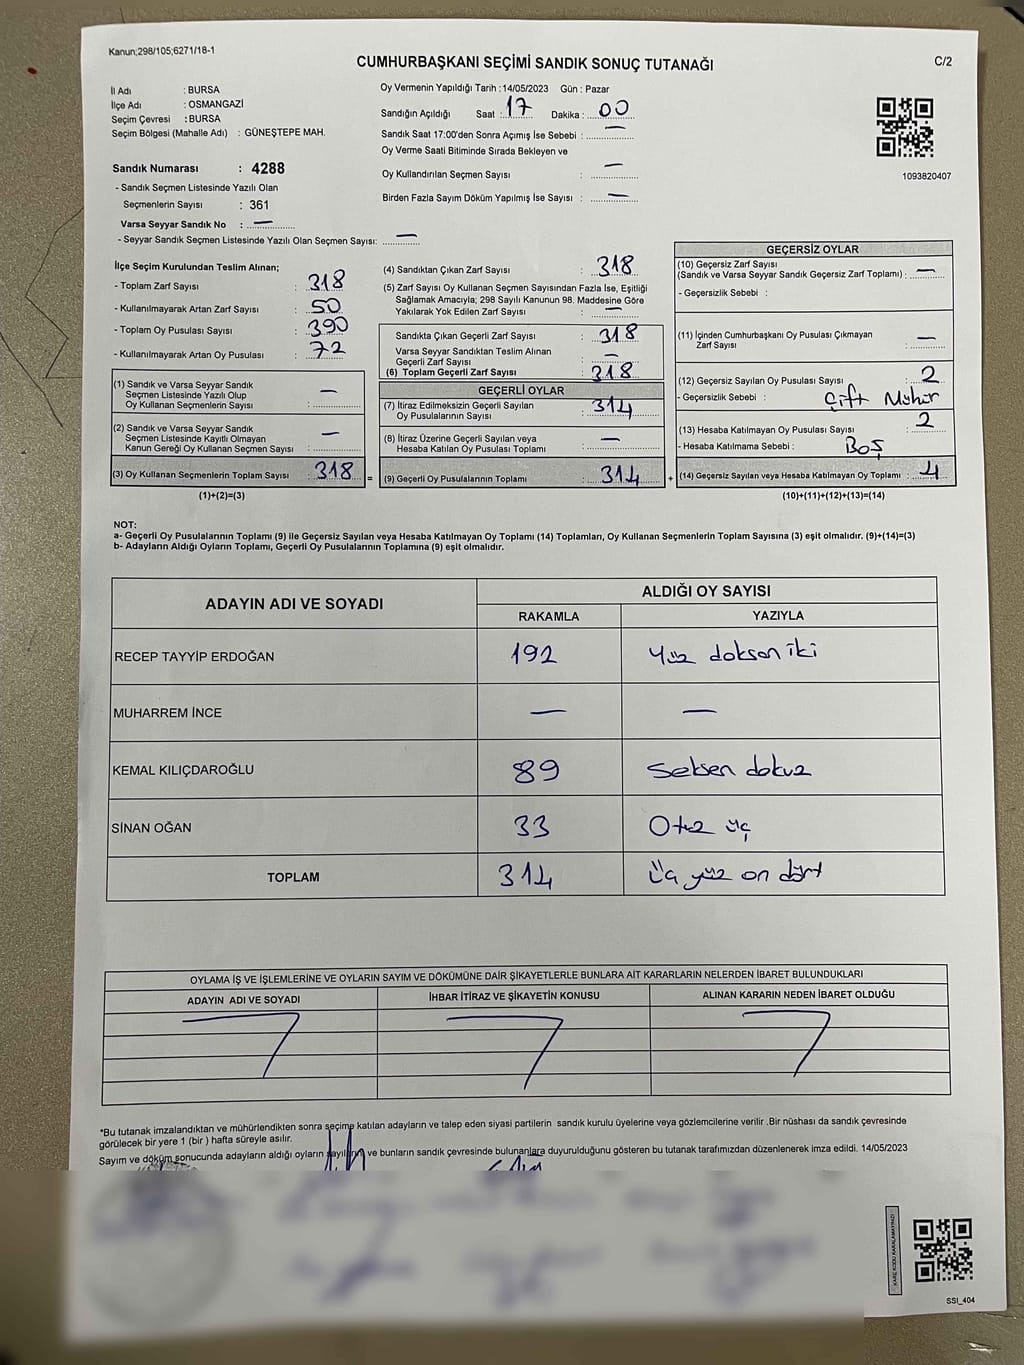 Kanun;298/105;6271/18-1
CUMHURBAŞKANI SEÇİMİ SANDIK SONUÇ TUTANAĞI
C/2
İl Adı : BURSA
İlçe Adı : OSMANGAZİ
Seçim Çevresi : BURSA
Seçim Bölgesi (Mahalle Adı) : GÜNEŞTEPE MAH.
Sandık Numarası : 4288
- Sandık Seçmen Listesinde Yazılı Olan
Seçmenlerin Sayısı : 361
Varsa Seyyar Sandık No : —
- Seyyar Sandık Seçmen Listesinde Yazılı Olan Seçmen Sayısı: —
Oy Vermenin Yapıldığı Tarih :14/05/2023 Gün : Pazar
Sandığın Açıldığı Saat : 17 Dakika : 00
Sandık Saat 17:00'den Sonra Açımış İse Sebebi : —
Oy Verme Saati Bitiminde Sırada Bekleyen ve
Oy Kullandırılan Seçmen Sayısı : —
Birden Fazla Sayım Döküm Yapılmış İse Sayısı : —
1093820407
İlçe Seçim Kurulundan Teslim Alınan;
- Toplam Zarf Sayısı : 318
- Kullanılmayarak Artan Zarf Sayısı : 50
- Toplam Oy Pusulası Sayısı : 390
- Kullanılmayarak Artan Oy Pusulası : 72
(1) Sandık ve Varsa Seyyar Sandık
Seçmen Listesinde Yazılı Olup
Oy Kullanan Seçmenlerin Sayısı : —
(2) Sandık ve Varsa Seyyar Sandık
Seçmen Listesinde Kayıtlı Olmayan
Kanun Gereği Oy Kullanan Seçmen Sayısı : —
(3) Oy Kullanan Seçmenlerin Toplam Sayısı : 318 =
(1)+(2)=(3)
(4) Sandıktan Çıkan Zarf Sayısı : 318
(5) Zarf Sayısı Oy Kullanan Seçmen Sayısından Fazla İse, Eşitliği
Sağlamak Amacıyla; 298 Sayılı Kanunun 98. Maddesine Göre
Yakılarak Yok Edilen Zarf Sayısı : —
Sandıkta Çıkan Geçerli Zarf Sayısı : 318
Varsa Seyyar Sandıktan Teslim Alınan
Geçerli Zarf Sayısı : —
(6) Toplam Geçerli Zarf Sayısı : 318
GEÇERLİ OYLAR
(7) İtiraz Edilmeksizin Geçerli Sayılan
Oy Pusulasının Sayısı : 314
(8) İtiraz Üzerine Geçerli Sayılan veya
Hesaba Katılan Oy Pusulası Toplamı : —
(9) Geçerli Oy Pusulalarının Toplamı : 314 +
GEÇERSİZ OYLAR
(10) Geçersiz Zarf Sayısı
(Sandık ve Varsa Seyyar Sandık Geçersiz Zarf Toplamı) : —
- Geçersizlik Sebebi :
(11) İçinden Cumhurbaşkanı Oy Pusulası Çıkmayan
Zarf Sayısı : —
(12) Geçersiz Sayılan Oy Pusulası Sayısı : 2
- Geçersizlik Sebebi : Çift Mühür
(13) Hesaba Katılmayan Oy Pusulası Sayısı : 2
- Hesaba Katılmama Sebebi : Boş
(14) Geçersiz Sayılan veya Hesaba Katılmayan Oy Toplamı : 4
(10)+(11)+(12)+(13)=(14)
NOT:
a- Geçerli Oy Pusulalarının Toplamı (9) ile Geçersiz Sayılan veya Hesaba Katılmayan Oy Toplamı (14) Toplamları, Oy Kullanan Seçmenlerin Toplam Sayısına (3) eşit olmalıdır. (9)+(14)=(3)
b- Adayların Aldığı Oyların Toplamı, Geçerli Oy Pusulalarının Toplamına (9) eşit olmalıdır.
ADAYIN ADI VE SOYADI ALDIĞI OY SAYISI
RAKAMLA YAZIYLA
RECEP TAYYİP ERDOĞAN 192 Yüz doksan iki
MUHARREM İNCE — —
KEMAL KILIÇDAROĞLU 89 Seksen dokuz
SİNAN OĞAN 33 Otuz üç
TOPLAM 314 Üç yüz on dört
OYLAMA İŞ VE İŞLEMLERİNE VE OYLARIN SAYIM VE DÖKÜMÜNE DAİR ŞİKAYETLERLE BUNLARA AİT KARARLARIN NELERDEN İBARET BULUNDUKLARI
ADAYIN ADI VE SOYADI İHBAR İTİRAZ VE ŞİKAYETİN KONUSU ALINAN KARARIN NEDEN İBARET OLDUĞU
*Bu tutanak imzalandıktan ve mühürlendikten sonra seçime katılan adayların ve talep eden siyasi partilerin sandık kurulu üyelerine veya gözlemcilerine verilir .Bir nüshası da sandık çevresinde
görülecek bir yere 1 (bir ) hafta süreyle asılır.
Sayım ve döküm sonucunda adayların aldığı oyların sayıları ve bunların sandık çevresinde bulunanlara duyurulduğunu gösteren bu tutanak tarafımızdan düzenlenerek imza edildi. 14/05/2023
SSI_404